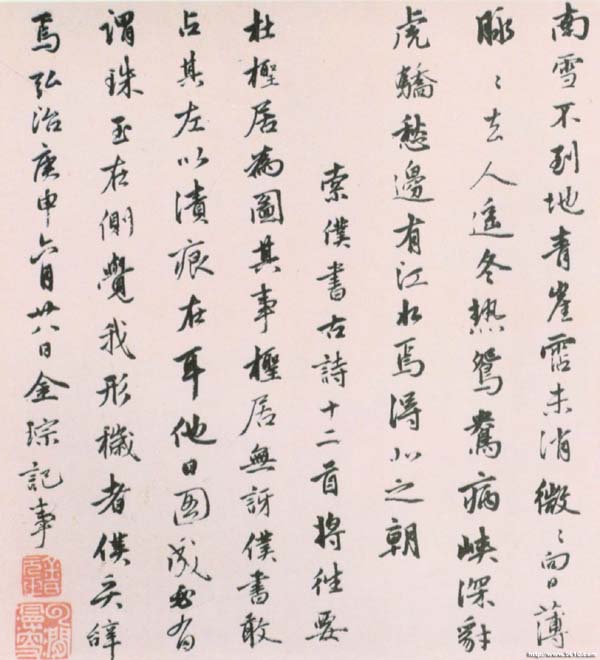 南雪不到地青崖霑未消微〻向日薄
脉〻去人遥冬热鴛鴦病峡深豺
虎驕愁邊有江水焉得北之朝
索僕書古詩十二首將往要
杜檉居為圖其事檉居無訝僕書敢
占其左以漬痕在耳他日圖成必有
謂珠玉在側覺我形穢者僕奚辞
焉弘治庚申六月廿八日金琮記事
http://www.9610.com